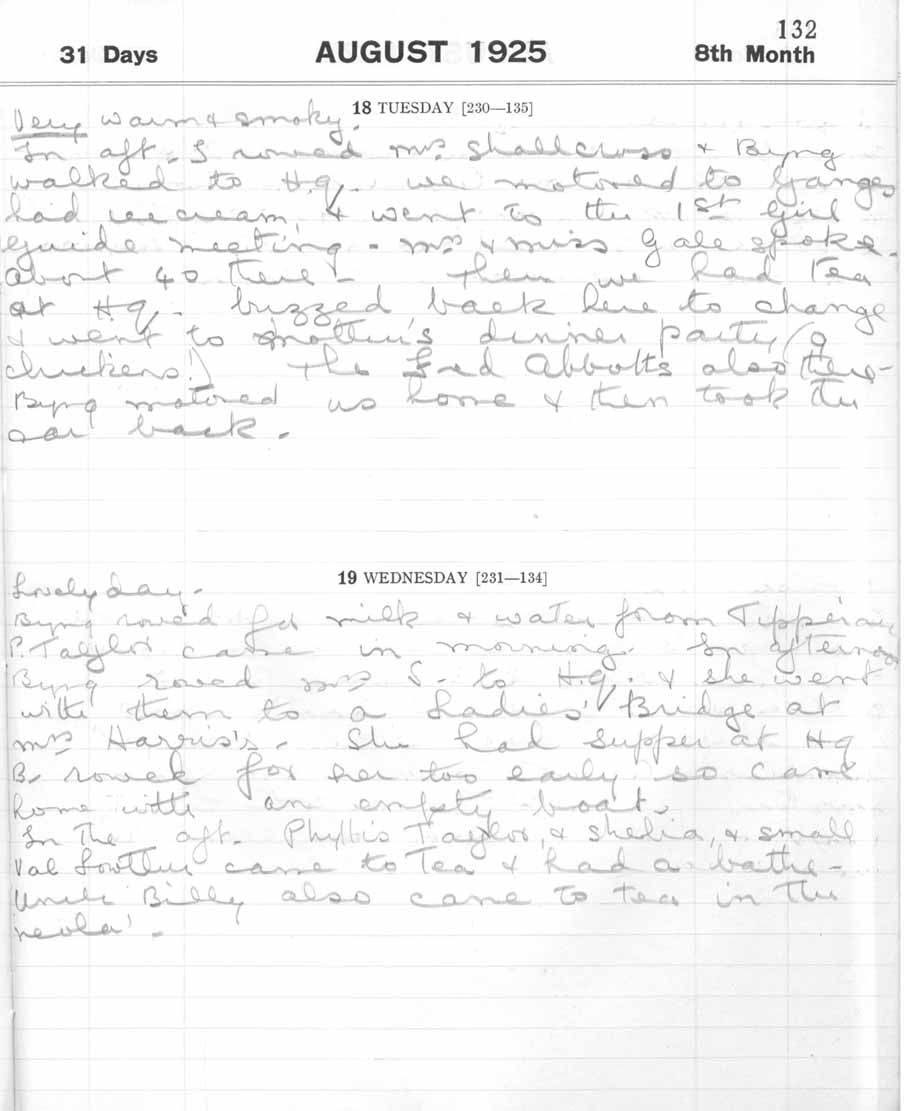 132
31 Days AUGUST 1925 8th Month
18 TUESDAY [230—135]
Very warm & smoky.
In aft. I rowed Mrs Shallcross & Byng
walked to H.Q. we motored to Ganges
had icecream & went to the 1st Girl
Guide meeting - Mrs & Miss Gale spoke -
about 40 there - Then we had Tea
at H.Q. buzzed back here to change
& went to Mother's dinner party (9
chickens!) The Fred Abbotts also there -
Byng motored us home & then took the
car back.
19 WEDNESDAY [231—134]
Lovely day -
Byng rowed for milk & water from
P. Taylor came in morning. In afternoon
Byng rowed Mrs S. to H.Q. & she went
with them to a Ladies' Bridge at
Mrs Harris's. She had supper at HQ
B. rowed for her too early so came
home with an empty boat.
In The aft. Phyllis Taylor, & Shelia, & small
Val Lowther came to Tea & had a bathe -
Uncle Billy also came to tea in the